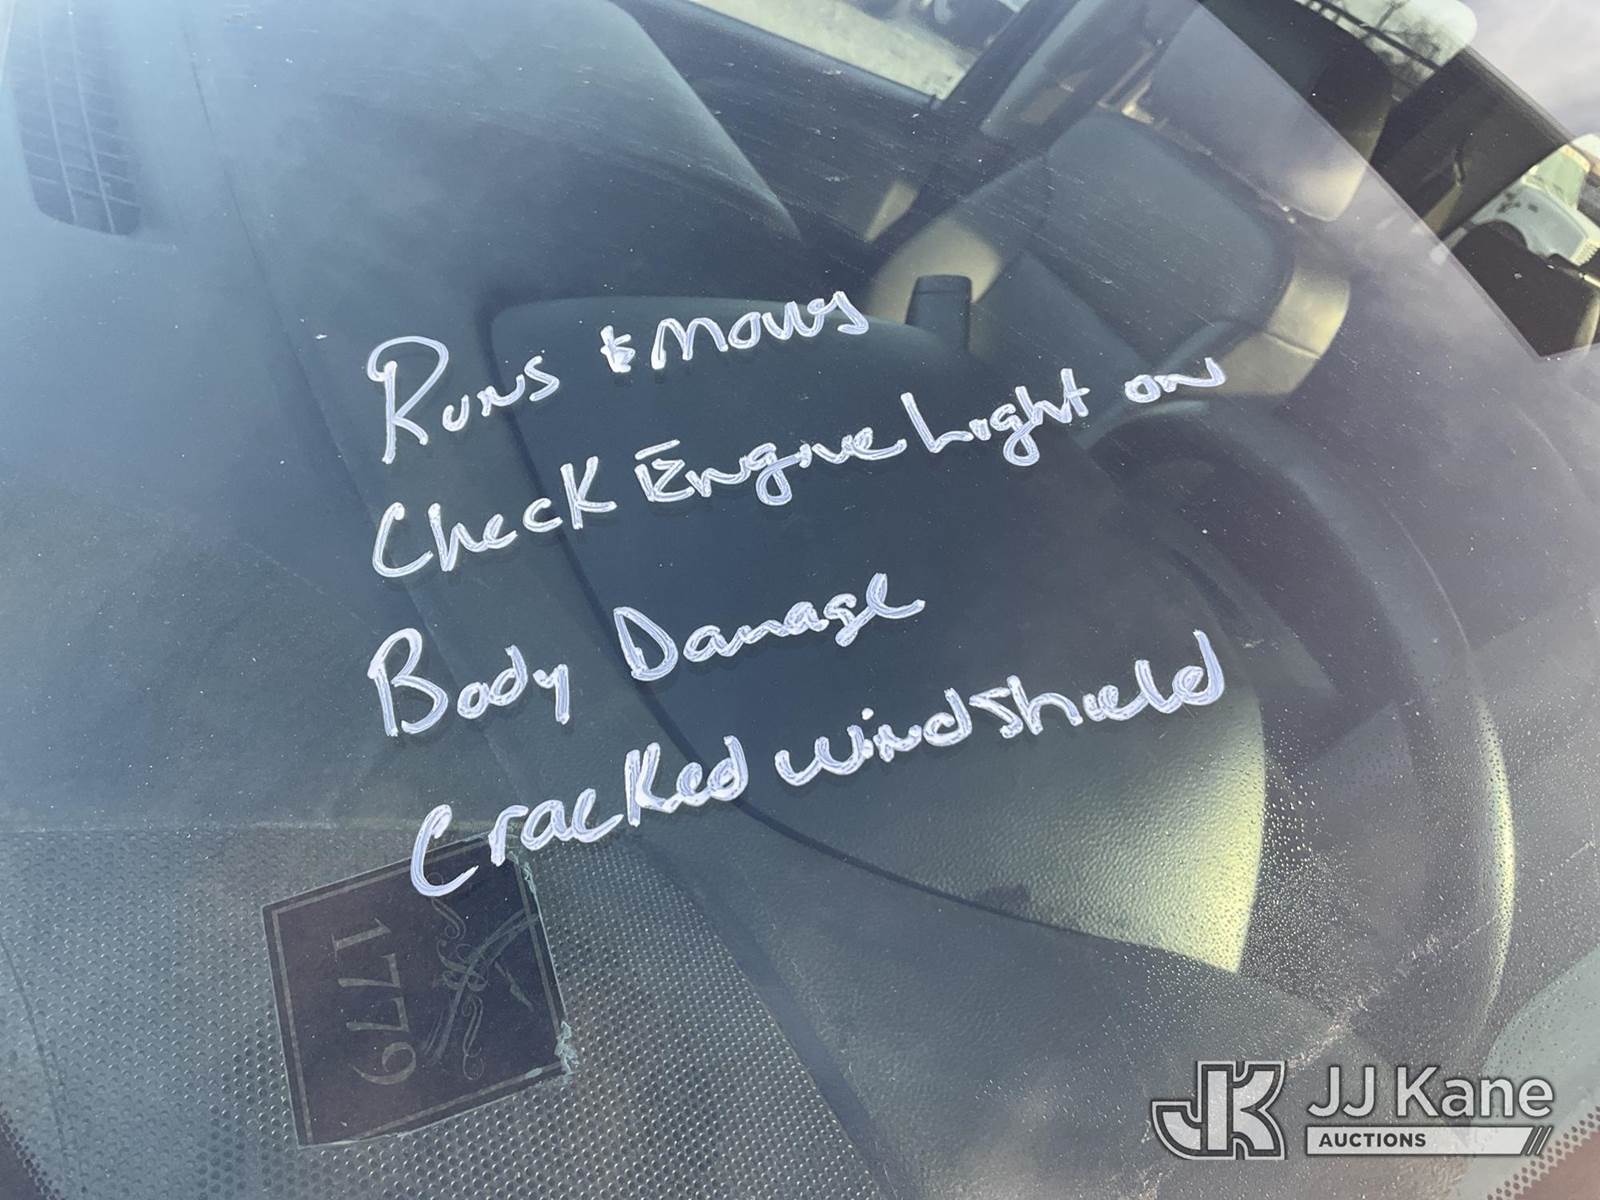 Runs & Moves
Check Engine Light on
Body Damage
Cracked Windshield
1779
JK
JJ Kane
AUCTIONS